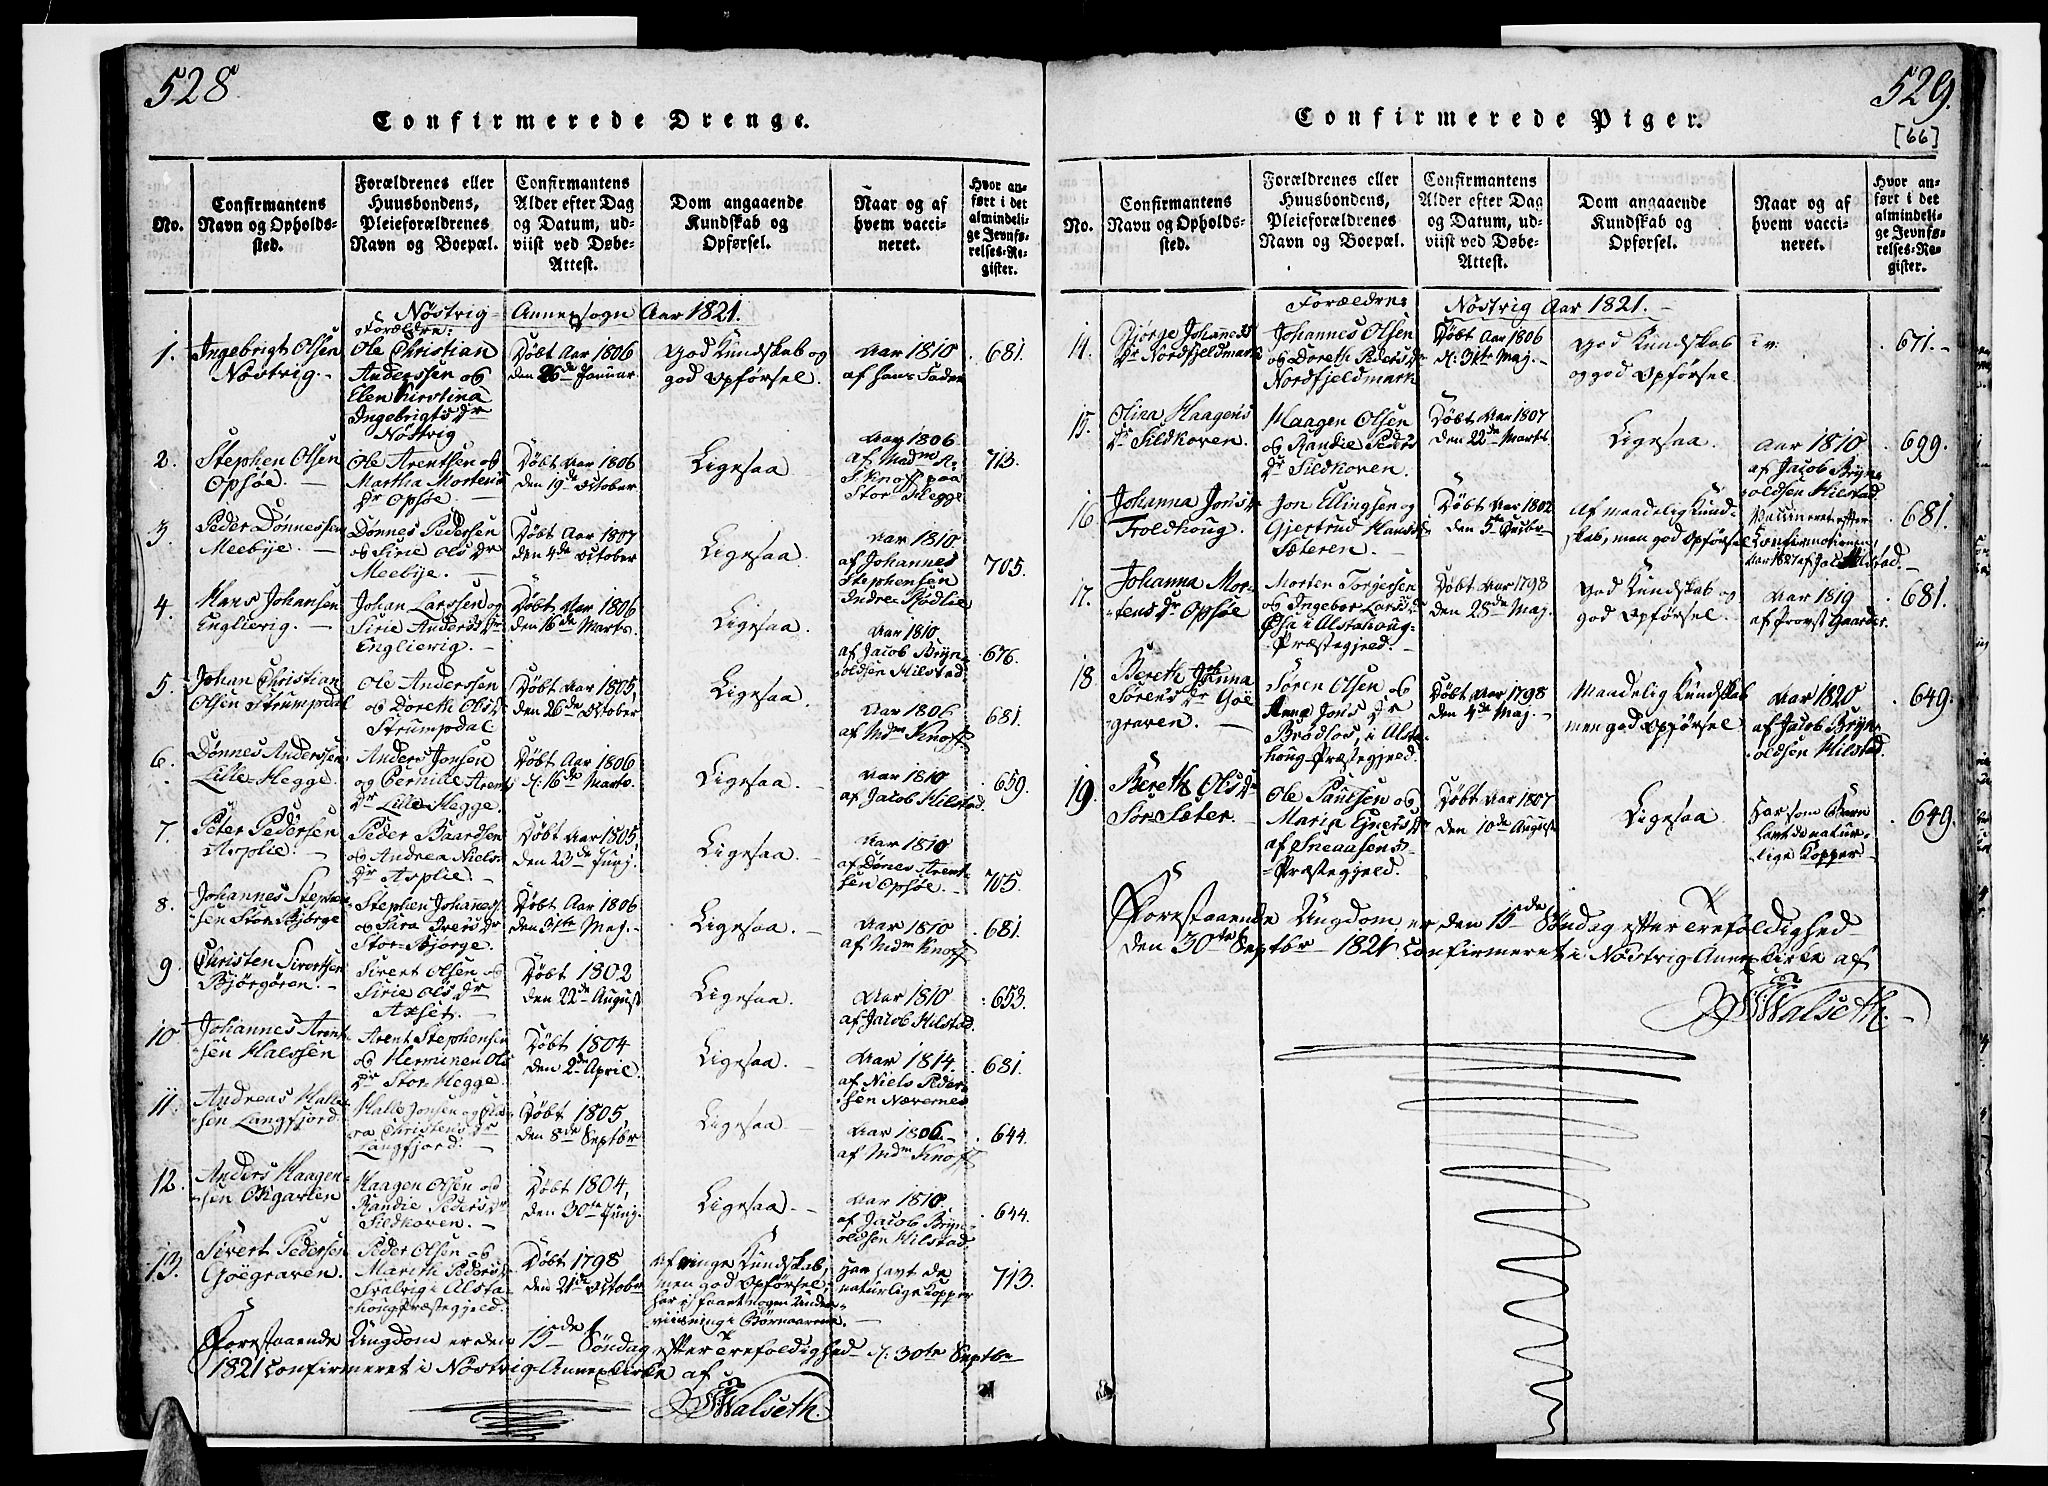 528
Confirmerede Drenge.
No.
Confirmantens
Navn og Opholds-
sted.
Forældrenes eller
Huusbondens,
Pleieforældrenes
Navn og Boepæl.
Confirmantens
Alder efter Dag
og Datum, ud-
viist ved Døbe-
Attest.
Dom angaaende
Kundskab og
Opførsel.
Naar og af
hvem vacci-
neret.
Hvor an-
ført i det
almindeli-
ge Jevnfø-
relses-Re-
gister.
Nöstrig Annexsogn Aar 1821.
1.
Ingebrigt Olsen
Nöstrig.
Forældre:
Ole Christian
Anderssen og
Elen Kirstina
Ingebrigts Dr
Nöstrig
Döbt Aar 1806
den 26de Januar.
God Kundskab og
god Opförsel.
Aar 1810
af Hans Fader
681.
2.
Stephen Olsen
Opsöe.
Ole Arentsen og
Martha Mortens
Dr Opsöe.
Döbt Aar 1806
den 19de October
Ligesaa.
Aar 1806
af Madm A.
S. Knoff paa
Stor Hegge
713.
3.
Peder Dönnessen
Meebye.
Dönnes Pedersen
og Sirie Ols Dr
Meebye.
Döbt Aar 1807
den 4de October
Ligesaa.
Aar 1810
af Johannes
Stephensen
Indre Rödlie
705.
4.
Hans Johansen
Englierig.
Johan Larssen og
Sirie Anders Dr
Englierig.
Döbt Aar 1806
den 16de Marts.
Ligesaa.
Aar 1810
af Jacob Bryn-
oldsen Hilstad
676.
5.
Johan Christian
Olsen Strumpdal
Ole Anderssen
og Doreth Ols Dr
Strumpdal.
Döbt Aar 1805,
den 26de October
Ligesaa.
Aar 1806
af Mdm Knoff
681.
6.
Dönnes Anderssen
Lille Hegge.
Anders Jonsen
og Pernille Arent
Dr Lille Hegge.
Döbt Aar 1806
d: 16de Marts.
Ligesaa.
Aar 1810
af Jacob Hilstad
659.
7.
Peter Pedersen
Asplie.
Peder Baardsen
og Andrea Niels
Dr Asplie.
Döbt Aar 1805,
den 23de Junj.
Ligesaa.
Aar 1810
af Dönes Arent-
sen Opsöe.
705.
8.
Johannes Stephen-
sen Stor Bjorge
Stephen Johanes
og Sara Ivers Dr
Stor Bjorge.
Döbt Aar 1806
den 31te Maj.
Ligesaa.
Aar 1810
af Mdm Knoff
681.
9
Christen Sivertsen
Bjørgören.
Sivert Olsen og
Sirie Ols Dr
Axset.
Döbt 1802
den 22de August
Ligesaa.
Aar 1810
af Jacob Hilstad.
653.
10
Johannes Arent-
sen Halssen
Arent Stephensen
og Hemunen Ols
Dr Stor Hegge.
Döbt 1804
den 2de April.
Ligesaa.
Aar 1814.
af Niels Peder-
sen Nævernes
681.
11
Andreas Halle-
sen Langfjord.
Halle Jonsen og
Christens Dr
Langfjord.
Döbt 1805
den 8de Septbr
Ligesaa.
Aar 1806.
af Mdm Knoff
644.
12.
Anders Haagen-
sen Oxgarlen
Haagen Olsen og
Randie Peders Dr
Sildhoven.
Döbt 1804,
den 30te Junj.
Ligesaa.
Aar 1810
af Jacob Bryn-
oldsen Hilstad.
644.
13.
Sivert Pedersen
Göegraven.
Peder Olsen og
Mareth Peders Dr
i Alsta-
houg Præstegjeld.
Döbt 1798
den 21de October
Af ringe Kundskab,
men god Opförsel,
har ej faaet nogen Under-
viisning i Börneaarene.
Har havt de
naturlige Kopper
713.
Forestaaende Ungdom er den 15de Söndag efter Trefoldighed d: 30te Septbr
1821 confirmeret i Nöstrig Annex Kirke af
Walseth.
529.
[66]
Confirmerede Piger.
No.
Confirmantens
Navn og Opholds-
sted.
Forældrenes eller
Huusbondens,
Pleieforældrenes
Navn og Boepæl.
Confirmantens
Alder efter Dag
og Datum, ud-
viist ved Døbe-
Attest.
Dom angaaende
Kundskab og
Opførsel.
Naar og af
hvem vacci-
neret.
Hvor an-
ført i det
almindeli-
ge Jevnfø-
relses-Re-
gister.
Nöstrig Aar 1821.
14.
Gjörje Johanes
Dr Nordfjeldmark
Forældre:
Johannes Olsen
og Doreth Peders Dr
Nordfjeldmark
Döbt Aar 1806
d: 31te Maj.
God Kundskab
og god Opförsel
671.
15.
Olina Haagens
Dr Sildhoven.
Haagen Olsen
og Randie Peders
Dr Sildhoven.
Döbt Aar 1807
den 22de Marts
Ligesaa.
Aar 1810
af Jacob Bryn-
oldsen Hilstad
699.
16
Johanna Jons Dr
Troldhoug.
Jon Ellingsen og
Gjertrud Hans Dr
Sæteren.
Döbt Aar 1802
den 5te Decbr
Af maadelig Kund-
skab, men god Opförsel
Vaccineret efter
Confirmationen,
Aar 1821 af Jac Hilstad.
681.
17.
Johanna Mor-
tens Dr Opsöe
Morten Torgersen
og Ingebor Lars Dr
i Alstahoug-
Præstegjeld.
Döbt Aar 1798
den 28de Maj.
God Kundskab og
god Opförsel.
Aar 1819
af Provst Gaarder.
681.
18
Bereth Johanna
Sörens Dr Göe
graven.
Sören Olsen og
Anna Jons Dr
Brödlos, i Alsta-
houg Præstegjeld.
Döbt Aar 1798
den 4de Maj.
Maadelig Kundskab
men god Opförsel
Aar 1820
af Jacob Bryn-
oldsen Hilstad.
649.
19.
Bereth Ols Dr
Sör-Sæter.
Ole Paulsen og
Maria Ejners Dr
af Sneaasens
Præstegjeld.
Döbt Aar 1807
den 10de August
Ligesaa.
Har som Barn
havt de natur-
lige Kopper
649.
Forestaaende Ungdom er den 15de Söndag efter Trefoldighed
den 30te Septbr 1821 confirmeret i Nöstrig Annex Kirke af
Walseth.